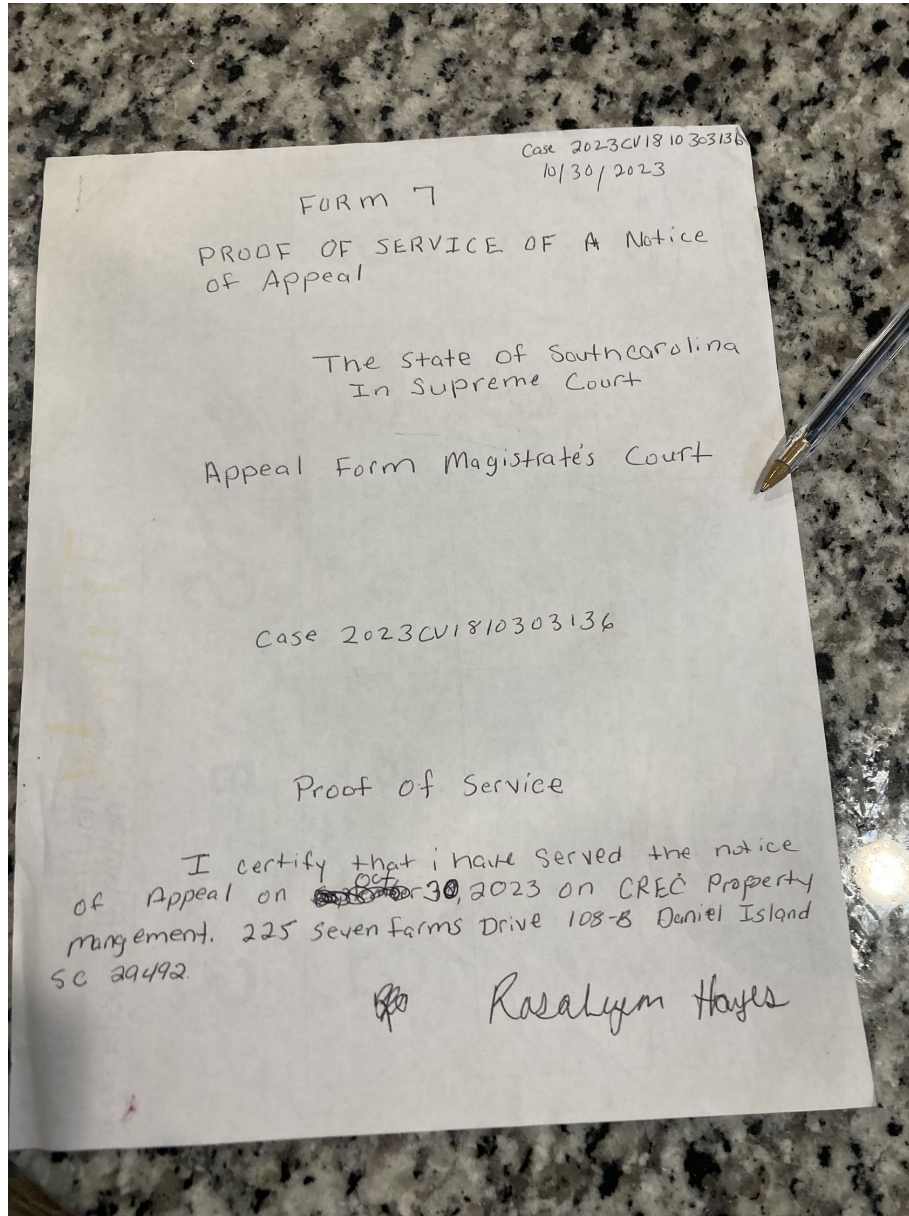 Case 2023CV1810303136
10/30/2023
FORM 7
PROOF OF SERVICE OF A Notice
of Appeal
The State of Southcarolina
In Supreme Court
Appeal Form Magistrate's Court
Case 2023CV1810303136
Proof of Service
I certify that i have served the notice
of Appeal on Oct 30, 2023 on CREC Property
mangement. 225 seven farms Drive 108-B Daniel Island
SC 29492.
Rosalyem Hayes